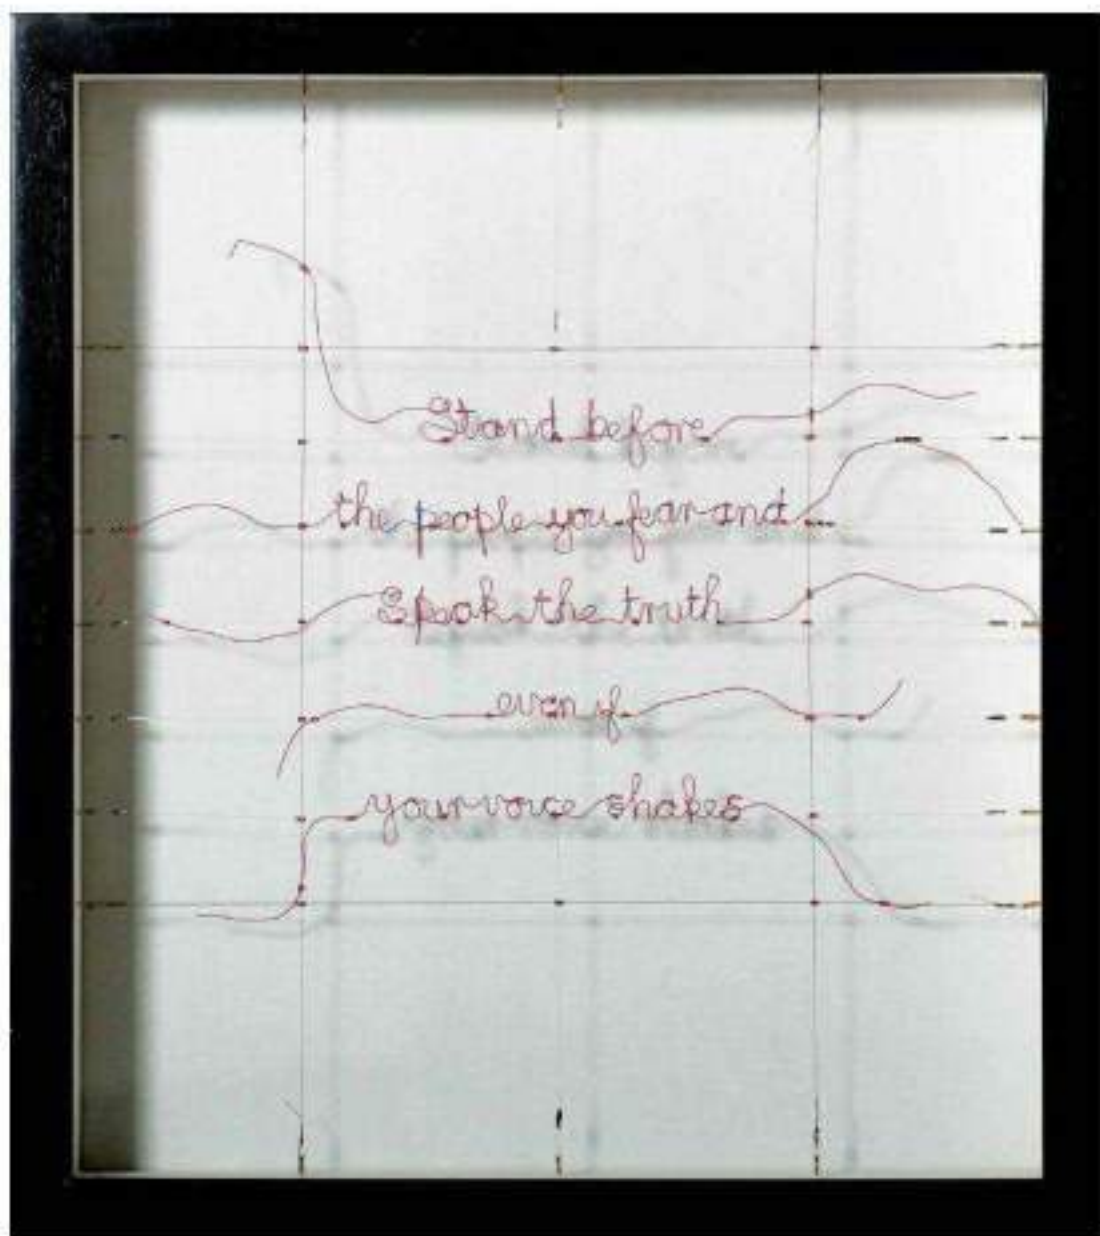 Stand before
the people you fear and
Speak the truth
even if
your voice shakes